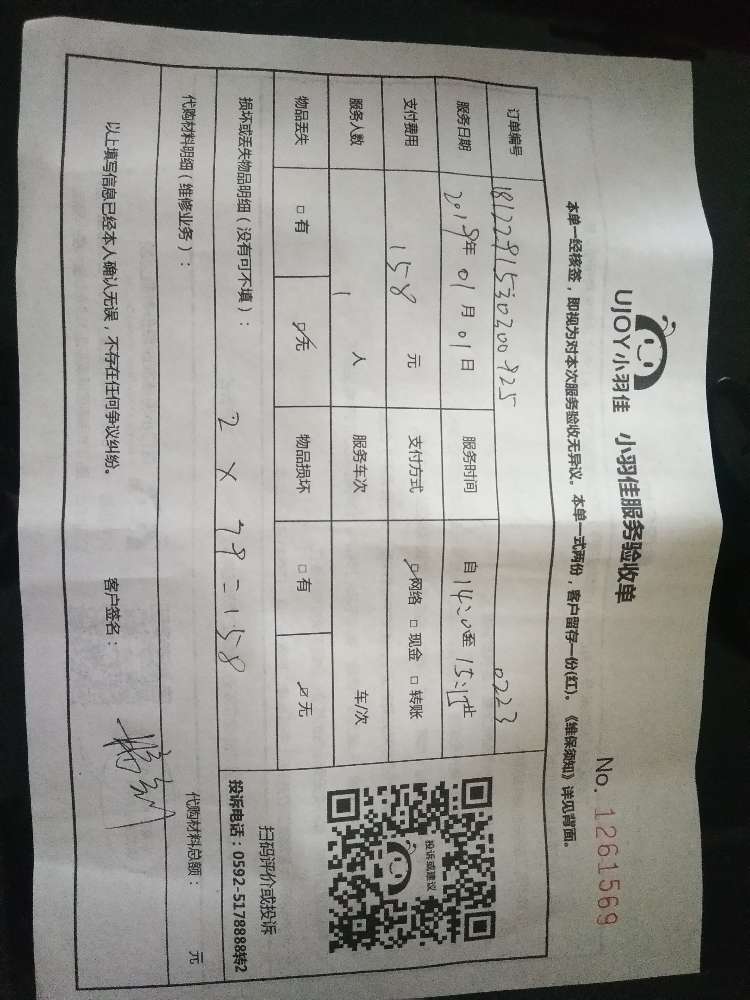 UJOY小羽佳 小羽佳服务验收单 No. 1261569
本单一经核签，即视为对本次服务验收无异议。本单一式两份，客户留存一份(红)。《维保须知》详见背面。
订单编号 0223
服务日期 2019年 01月 01日 服务时间 自 14:20至
支付费用 158 元 支付方式 ☑网络 □现金 □转账
服务人数 1 人 服务车次 车/次
物品丢失 □有 ☑无 物品损坏 □有 ☑无
损坏或丢失物品明细（没有可不填）：
2×79=158
代购材料明细（维修业务）：
代购材料总额： 元
以上填写信息已经本人确认无误，不存在任何争议纠纷。 客户签名：
投诉或建议
扫码评价或投诉
投诉电话：0592-5178888转2